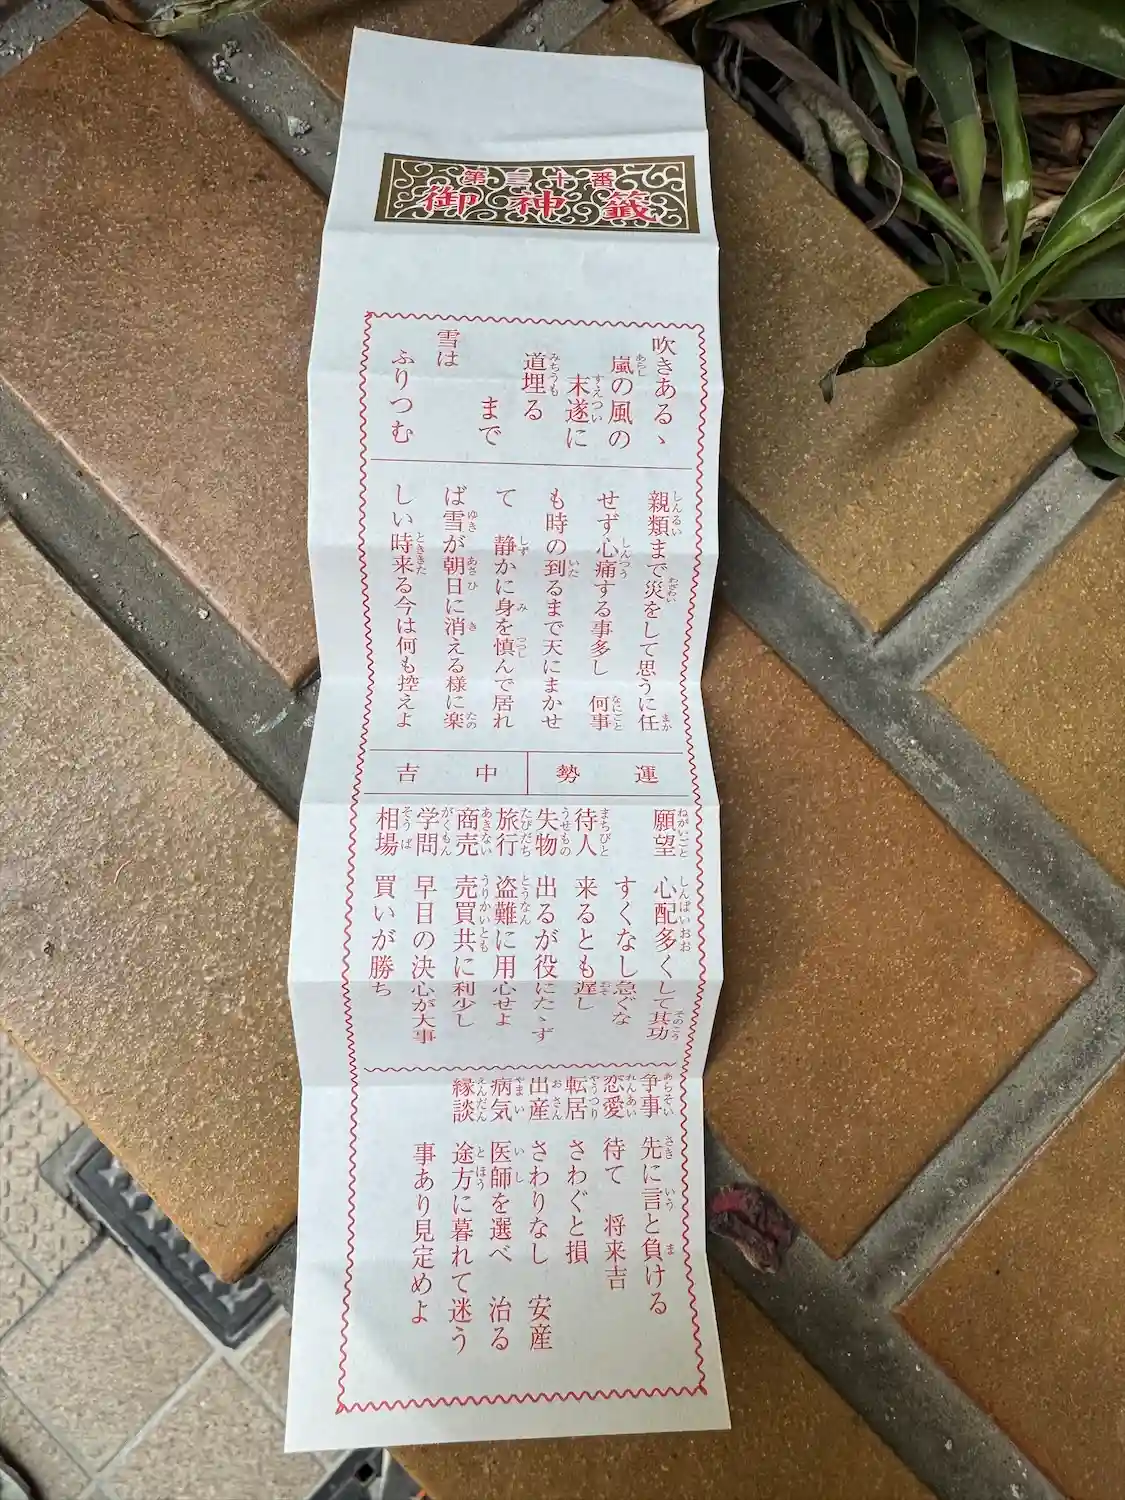 第三十番
御神籤
吹きある、
嵐の風の
末遂に
まで
道埋る
雪は
ふりつむ
親類まで災をして思うに任
せず心痛する事多し　何事
も時の到るまで天にまかせ
て　静かに身を慎んで居れ
ば雪が朝日に消える様に楽
しい時来る今は何も控えよ
運勢　中吉
願望　心配多くして其功
すくなし急ぐな
待人　来るとも遅し
失物　出るが役にたゝず
旅行　盗難に用心せよ
商売　売買共に利少し
学問　早日の決心が大事
相場　買いが勝ち
争事　先に言と負ける
恋愛　待て　将来吉
転居　さわぐと損
出産　さわりなし　安産
病気　医師を選べ　治る
縁談　途方に暮れて迷う
事あり見定めよ